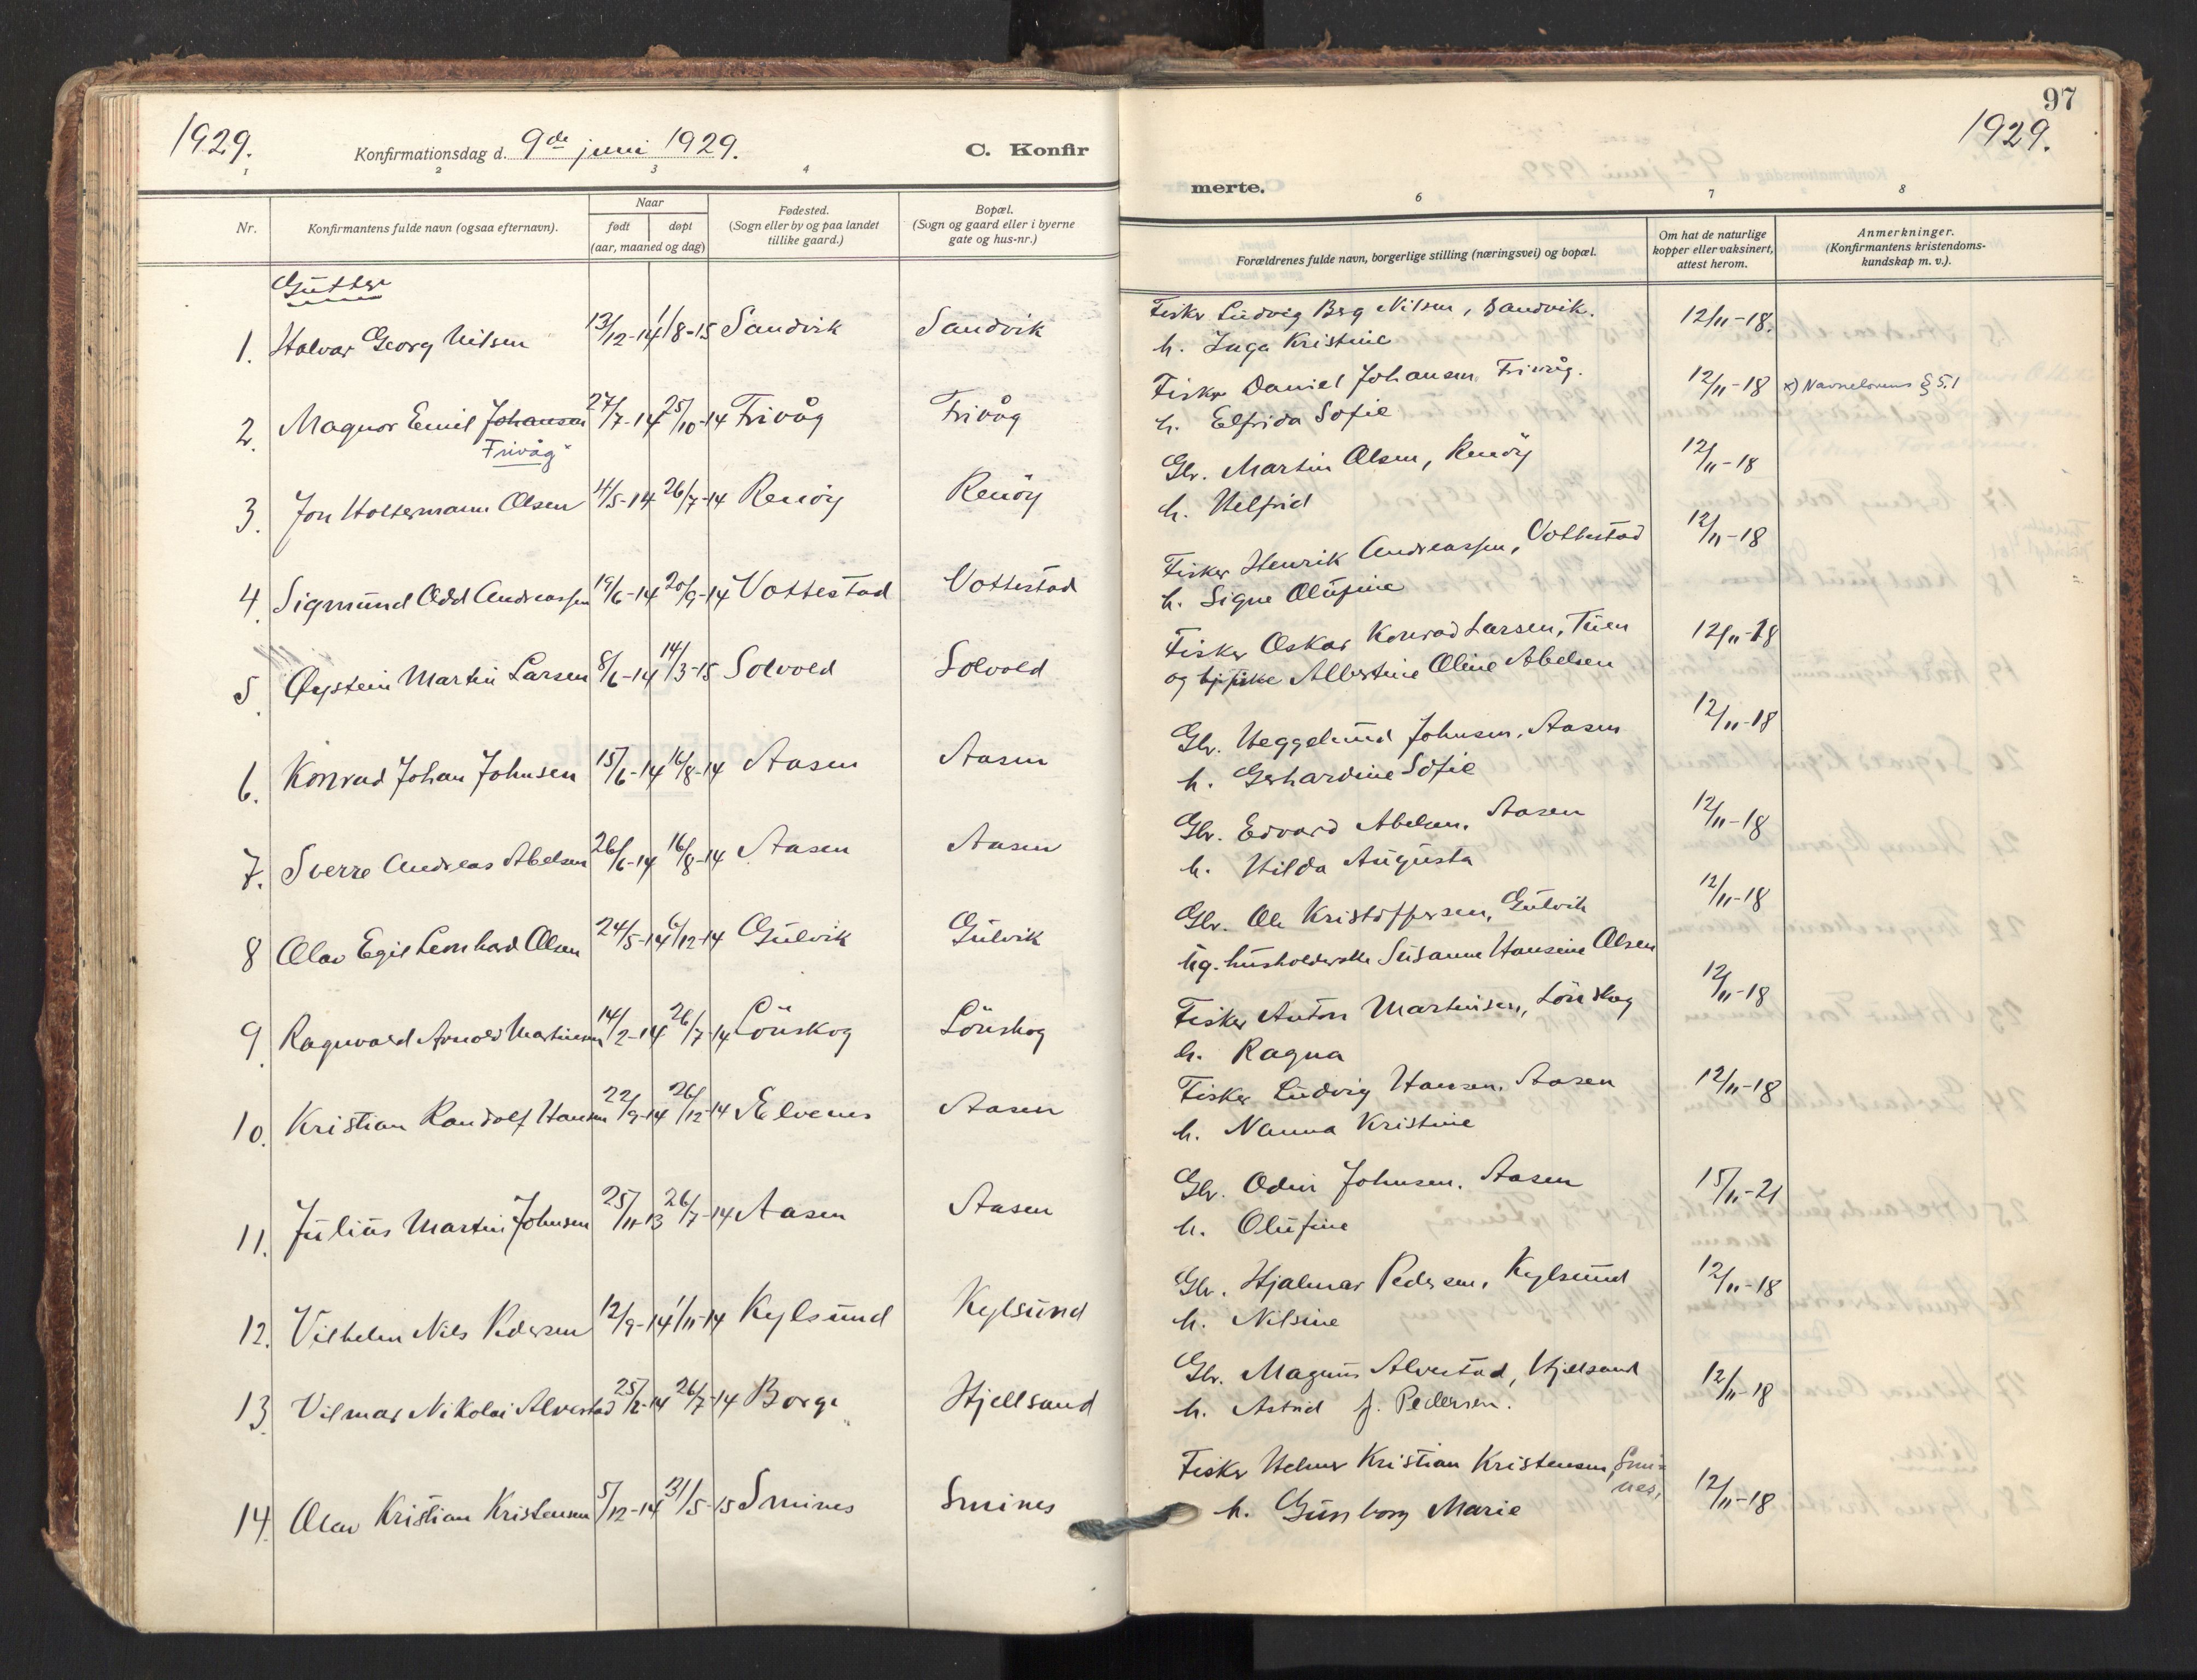 1929.
Konfirmationsdag d. 9de juni 1929.
C. Konfir
1 2 3 4
Nr.
Konfirmantens fulde navn (ogsaa efternavn).
Naar
født døpt
(aar, maaned og dag)
Fødested.
(Sogn eller by og paa landet
tillike gaard.)
Bopæl.
(Sogn og gaard eller i byerne
gate og hus-nr.)
Gutter
1. Halvar Georg Nilsen 13/12-14 1/8-15 Sandvik Sandvik
2. Magnor Emil Johansen 27/7-14 25/10-14 Frivåg Frivåg
Frivåg x
3. Jon Holtermann Olsen 11/5-14 26/7-14 Renöy Renöy
4. Sigmund Odd Andreassen 19/6-14 20/9-14 Vottestad Vottestad
5. Øystein Martin Larsen 8/6-14 14/3-15 Solvold Solvold
6. Konrad Johan Johnsen 15/6-14 16/8-14 Aasen Aasen
7. Sverre Andreas Abelsen 26/6-14 16/8-14 Aasen Aasen
8 Olav Egil Leonhard Olsen 24/5-14 6/12-14 Gulvik Gulvik
9 Ragnvald Arnold Martinsen 14/2-14 26/7-14 Lönskog Lönskog
10. Kristian Randolf Hansen 22/9-14 26/12-14 Elvenes Aasen
11. Julius Martin Johnsen 25/11-13 26/7-14 Aasen Aasen
12. Vilhelm Nils Pedersen 12/9-14 1/11-14 Kylsund Kylsund
13. Vilmar Nikolai Alvestad 25/2-14 26/7-14 Borge Hjellsand
14. Olav Kristian Kristensen 5/12-14 31/5-15 Smines Smines
97
1929.
merte.
6 7 8
Forældrenes fulde navn, borgerlige stilling (næringsvei) og bopæl.
Om hat de naturlige
kopper eller vaksinert,
attest herom.
Anmerkninger.
(Konfirmantens kristendoms-
kundskap m. v.).
Fisker Ludvig Berg Nilsen, Sandvik. 12/11-18.
h. Inga Kristine
Fisker Daniel Johansen, Frivåg. 12/11-18 x) Navnelovens § 5.1
h. Elfrida Sofie
Gbr. Martin Olsen, Renöy 12/11-18
h. Helfrid
Fisker Henrik Andreassen, Vottestad 12/11-18
h. Signe Olufine
Fisker Oskar Konrad Larsen, Tuen 12/11-18
og Albertine Oline Abelsen
Gbr. Heggelund Johnsen, Aasen 12/11-18
h. Gerhardine Sofie
Gbr. Edvard Abelsen, Aasen 12/11-18
h. Hilda Augusta
Gbr. Ole Kristoffersen, Gulvik 12/11-18
ug. husholderske Susanne Hansine Olsen
Fisker Anton Martinsen, Lönskog 12/11-18
h. Ragna
Fisker Ludvig Hansen, Aasen 12/11-18
h. Nanna Kristine
Gbr. Odin Johnsen. Aasen 15/11-21
h. Olufine
Gbr. Hjalmar Pedersen, Kylsund 12/11-18
h. Nilsine
Gbr. Magnus Alvestad, Hjellsand 12/11-18
h. Astrid f. Pedersen.
Fisker Helmer Kristian Kristensen, Smi=
nes, 12/11-18
h. Gunborg Marie